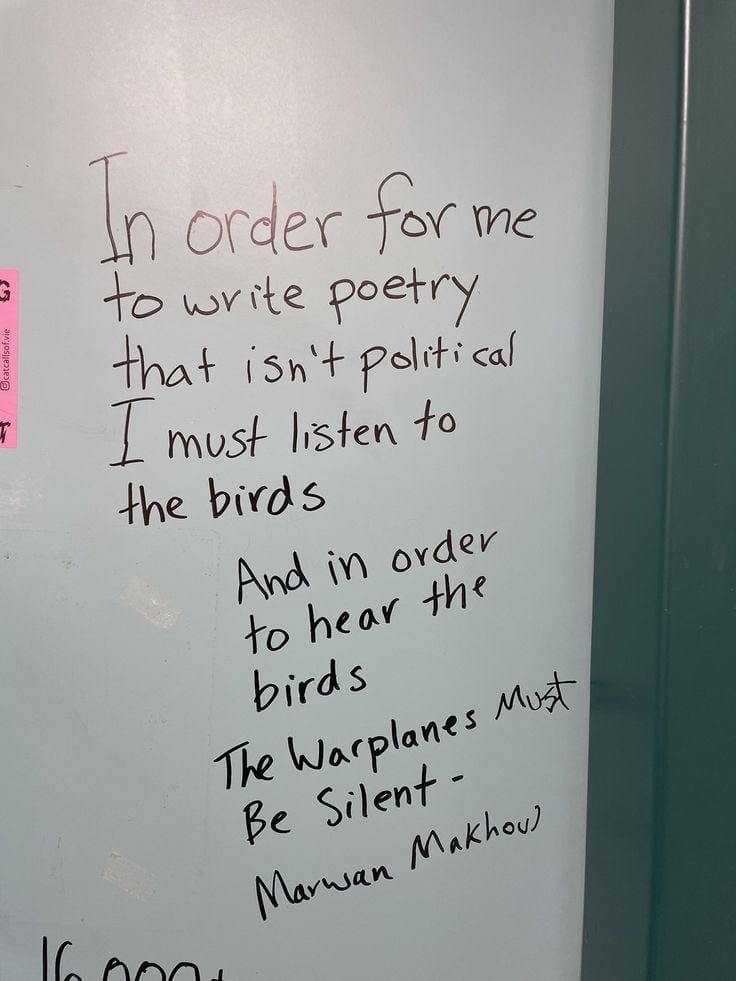 In order for me
to write poetry
that isn't political
I must listen to
the birds
And in order
to hear the
birds
The Warplanes Must
Be Silent -
Marwan Makhoul
@catcallsof.vie
G
16,000+